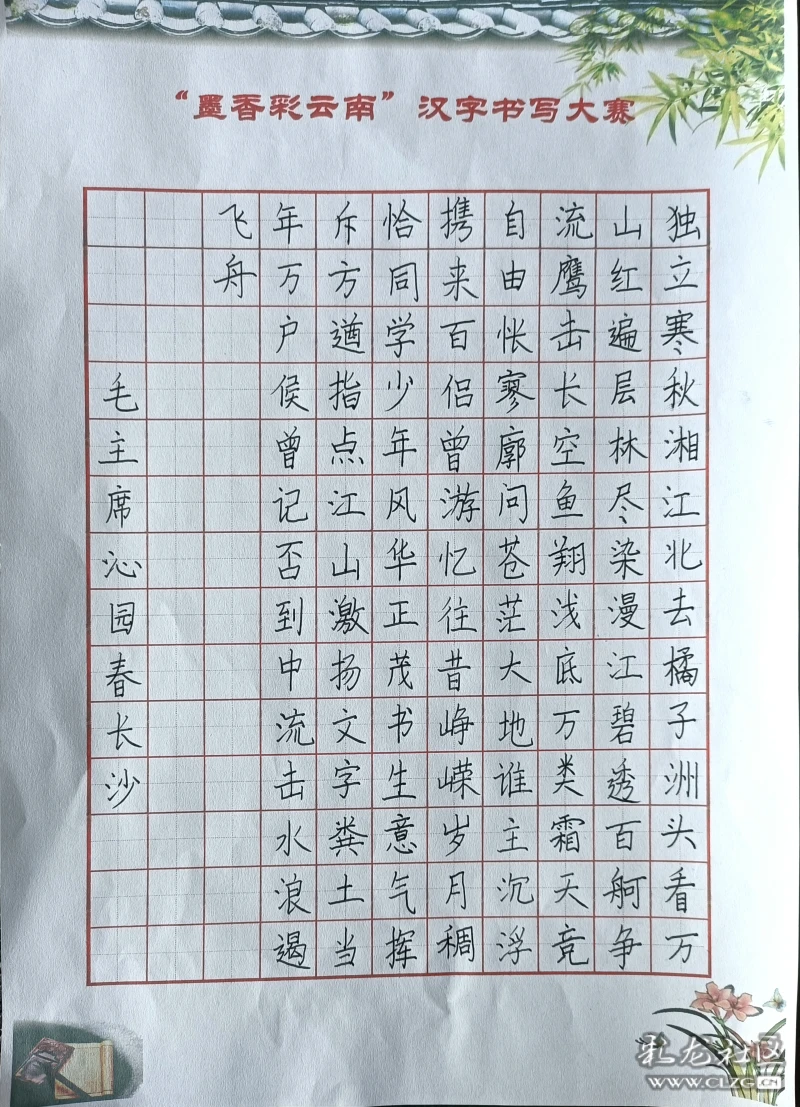 “墨香彩云南”汉字书写大赛
独立寒秋湘江北去橘子洲头看万
山红遍层林尽染漫江碧透百舸争
流鹰击长空鱼翔浅底万类霜天竞
自由怅寥廓问苍茫大地谁主沉浮
携来百侣曾游忆往昔峥嵘岁月稠
恰同学少年风华正茂书生意气挥
斥方遒指点江山激扬文字粪土当
年万户侯曾记否到中流击水浪遏
飞舟
毛主席沁园春长沙
彩龙社区
www.CLZG.CN